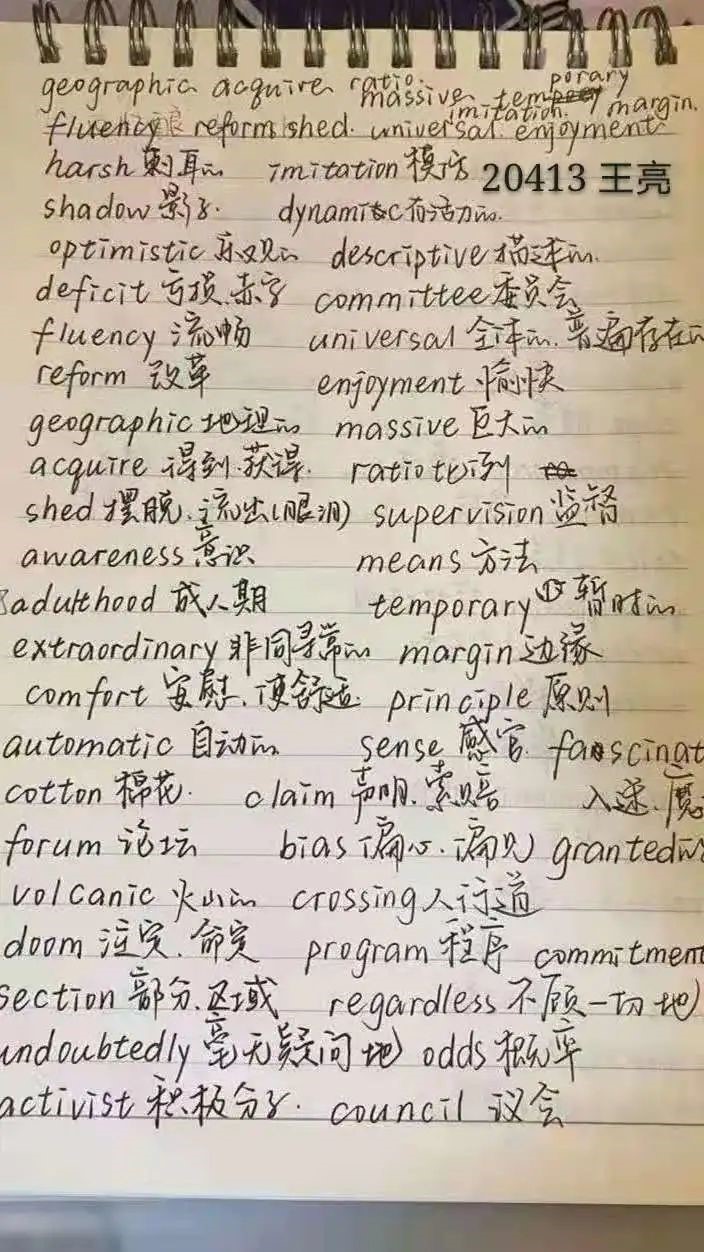 geographic acquire ratio. massive temporary
imitation. margin.
fluency reform shed. universal. enjoyment
harsh 刺耳的 imitation 模仿
20413 王亮
shadow 影子. dynamic 有活力的.
optimistic 乐观的 descriptive 描述的.
deficit 亏损.赤字 committee 委员会
fluency 流畅 universal 全体的.普遍存在的
reform 改革 enjoyment 愉快
geographic 地理的 massive 巨大的
acquire 得到.获得. ratio 比例
shed 摆脱.流出(眼泪) supervision 监督
awareness 意识 means 方法
adulthood 成人期 temporary 暂时的
extraordinary 非同寻常的 margin 边缘
comfort 安慰.使舒适 principle 原则
automatic 自动的 sense 感官 fascinat
cotton 棉花. claim 声明.索赔 入迷.魔
forum 论坛 bias 偏心.偏见 granted
volcanic 火山的 crossing 人行道
doom 注定.命定 program 程序 commitment
section 部分.区域 regardless 不顾一切地
undoubtedly 毫无疑问地 odds 概率
activist 积极分子. council 议会